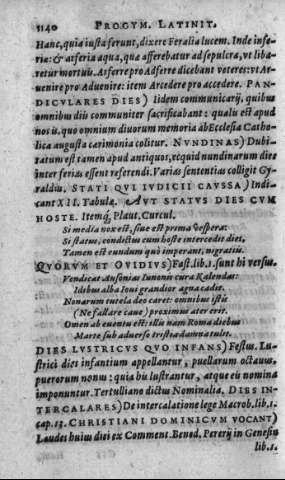 1140 PROGYM. LATINIT.
Hanc, quia iusta ferunt, dixere Feralia lucem. Inde infe-
ria: & arferia aqua, quæ afferebatur ad sepulcra, vt liba-
retur mortuis. Arferre pro Adferre dicebant veteres: vt Ar-
uenire pro Aduenire: item Arcedere pro accedere. PAN-
DICVLARES DIES) Iidem communicarij, quibus
omnibus diis communiter sacrificabant: qualis est apud
nos is, quo omnium diuorum memoria ab Ecclesia Catho-
lica augusta cærimonia colitur. NVNDINAS) Dubi-
tatum est tamen apud antiquos, ecquid nundinarum dies
inter ferias essent referendi. Varias sententias colligit Gy-
raldus. STATI QVI IVDICII CAVSSA) Indi-
cant XII. Fabulæ. AVT STATVS DIES CVM
HOSTE. Itemq́; Plaut. Curcul.
Si media nox est, siue est prima vespera:
Si status, condictus cum hoste intercedit dies,
Tamen est eundum quò imperant, ingratiis.
QVORVM ET OVIDIVS) Fast. lib. 1. sunt hi versus.
Vendicat Ausonias Iunonis cura Kalendas:
Idibus alba Ioui grandior agna cadit.
Nonarum tutela deo caret: omnibus istis
(Ne fallare caue) proximus ater erit.
Omen ab euentu est: illis nam Roma diebus
Marte sub aduerso tristia damna tulit.
DIES LVSTRICVS QVO INFANS) Festus. Lu-
strici dies infantium appellantur, puellarum octauus,
puerorum nonus: quia his lustrantur, atque eis nomina
imponuntur. Tertulliano dictus Nominalia. DIES IN-
TERCALARES) De intercalatione lege Macrob. lib. 1.
cap. 13. CHRISTIANI DOMINICVM VOCANT)
Laudes huius diei ex Comment. Bened. Pererij in Genesin
lib. 1.